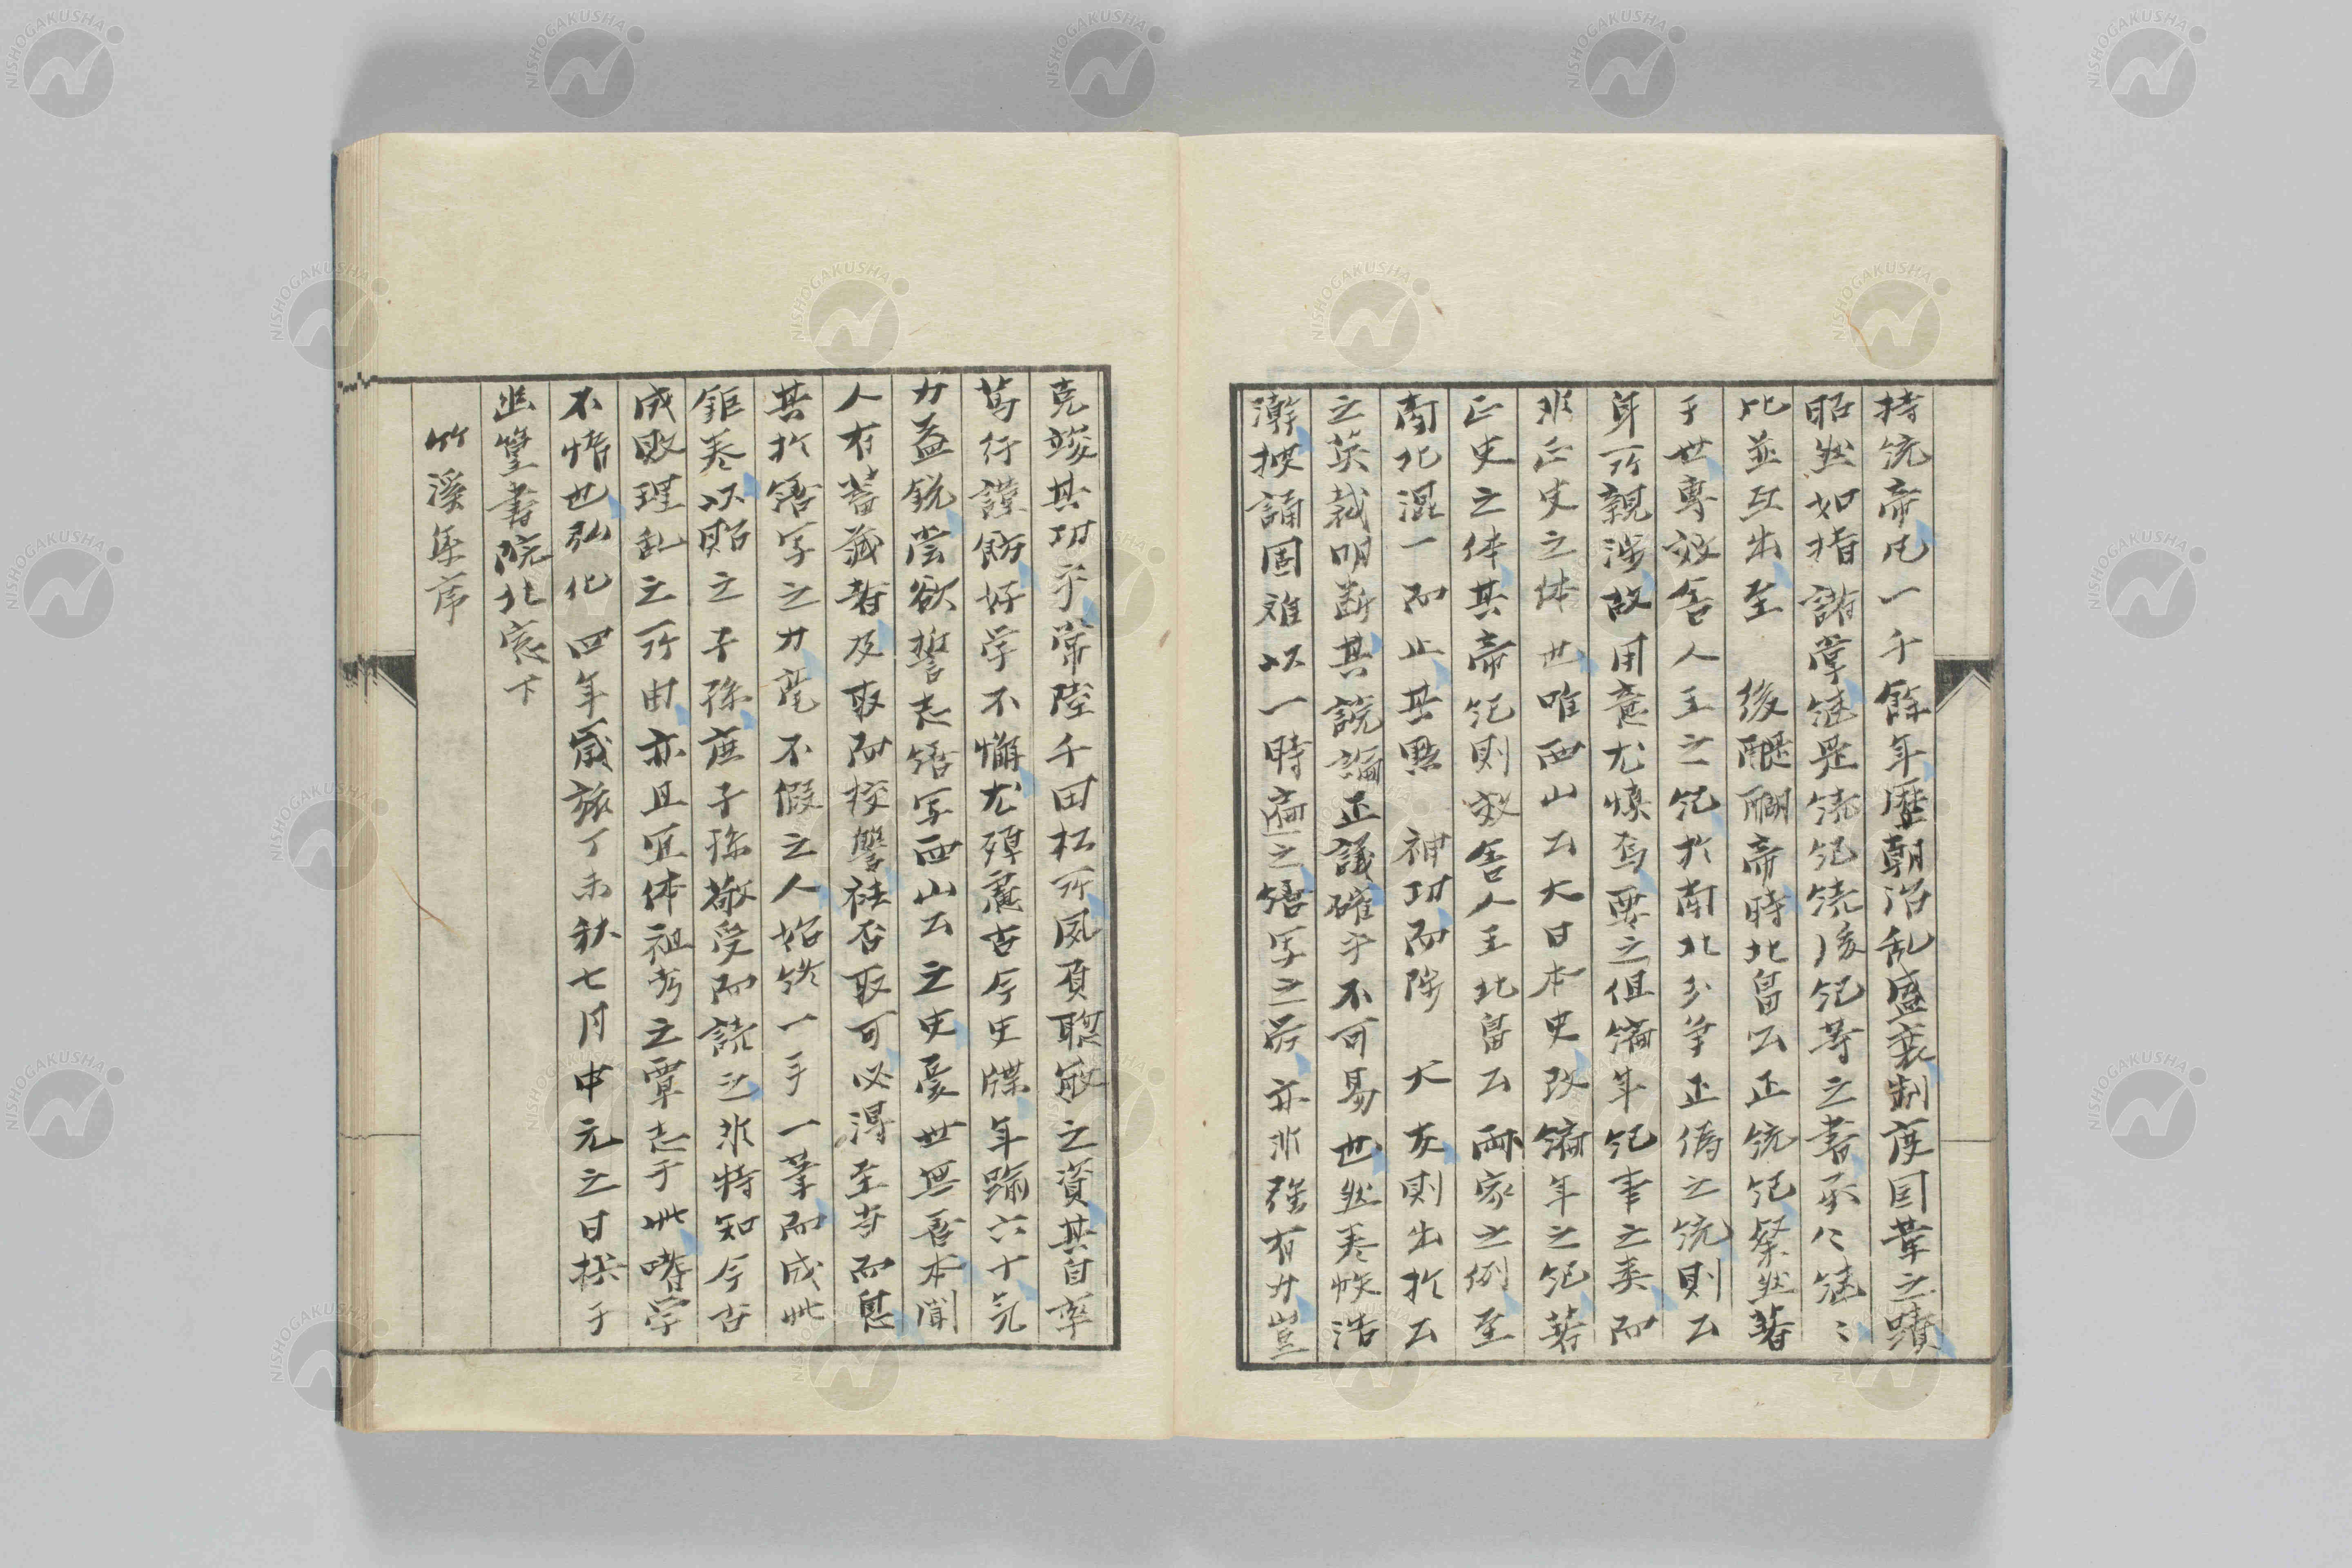 持統帝凡一千餘年歴朝治乱盛衰制度因革之蹟
昭然如指諸掌継是続紀続後紀等之書承〻継〻
比並互出至 後醍醐帝時北畠公正統紀粲然著
于世専效舎人王之紀於南北分争正偽之統則公
身所親渉故用意尤慎焉要之但編年紀事之美而
非正史之体也唯西山公大日本史改編年之紀著
正史之体其帝紀則效舎人王北畠公両家之例至
南北混一而止其黜 神功而陞 大友則出於公
之英裁明断其説論正議確乎不可易也然巻帙浩
瀚披誦固难以一時窮之謄写之労亦非強有力豈
克竣其功乎常陸千田松所夙負聡敏之資其自率
篤行謹飭好学不懈尤殫慮古今史牒年踰六十気
力益鋭嘗欲誓志謄写西山公之史憂世無善本聞
人有蓄蔵者及取而挍讐往否取可必得至当而息
其於謄写之力竟不假之人始終一手一筆而成此
鉅巻以貽之子孫庶子孫敬受而読之非特知今古
成敗理乱之所由亦且宜体祖考之覃志于此嗜学
不惰也弘化四年歳旅丁未秋七月中元之日撰于
幽篁書院北窓下
竹溪集序
NISHOGAKUSHA